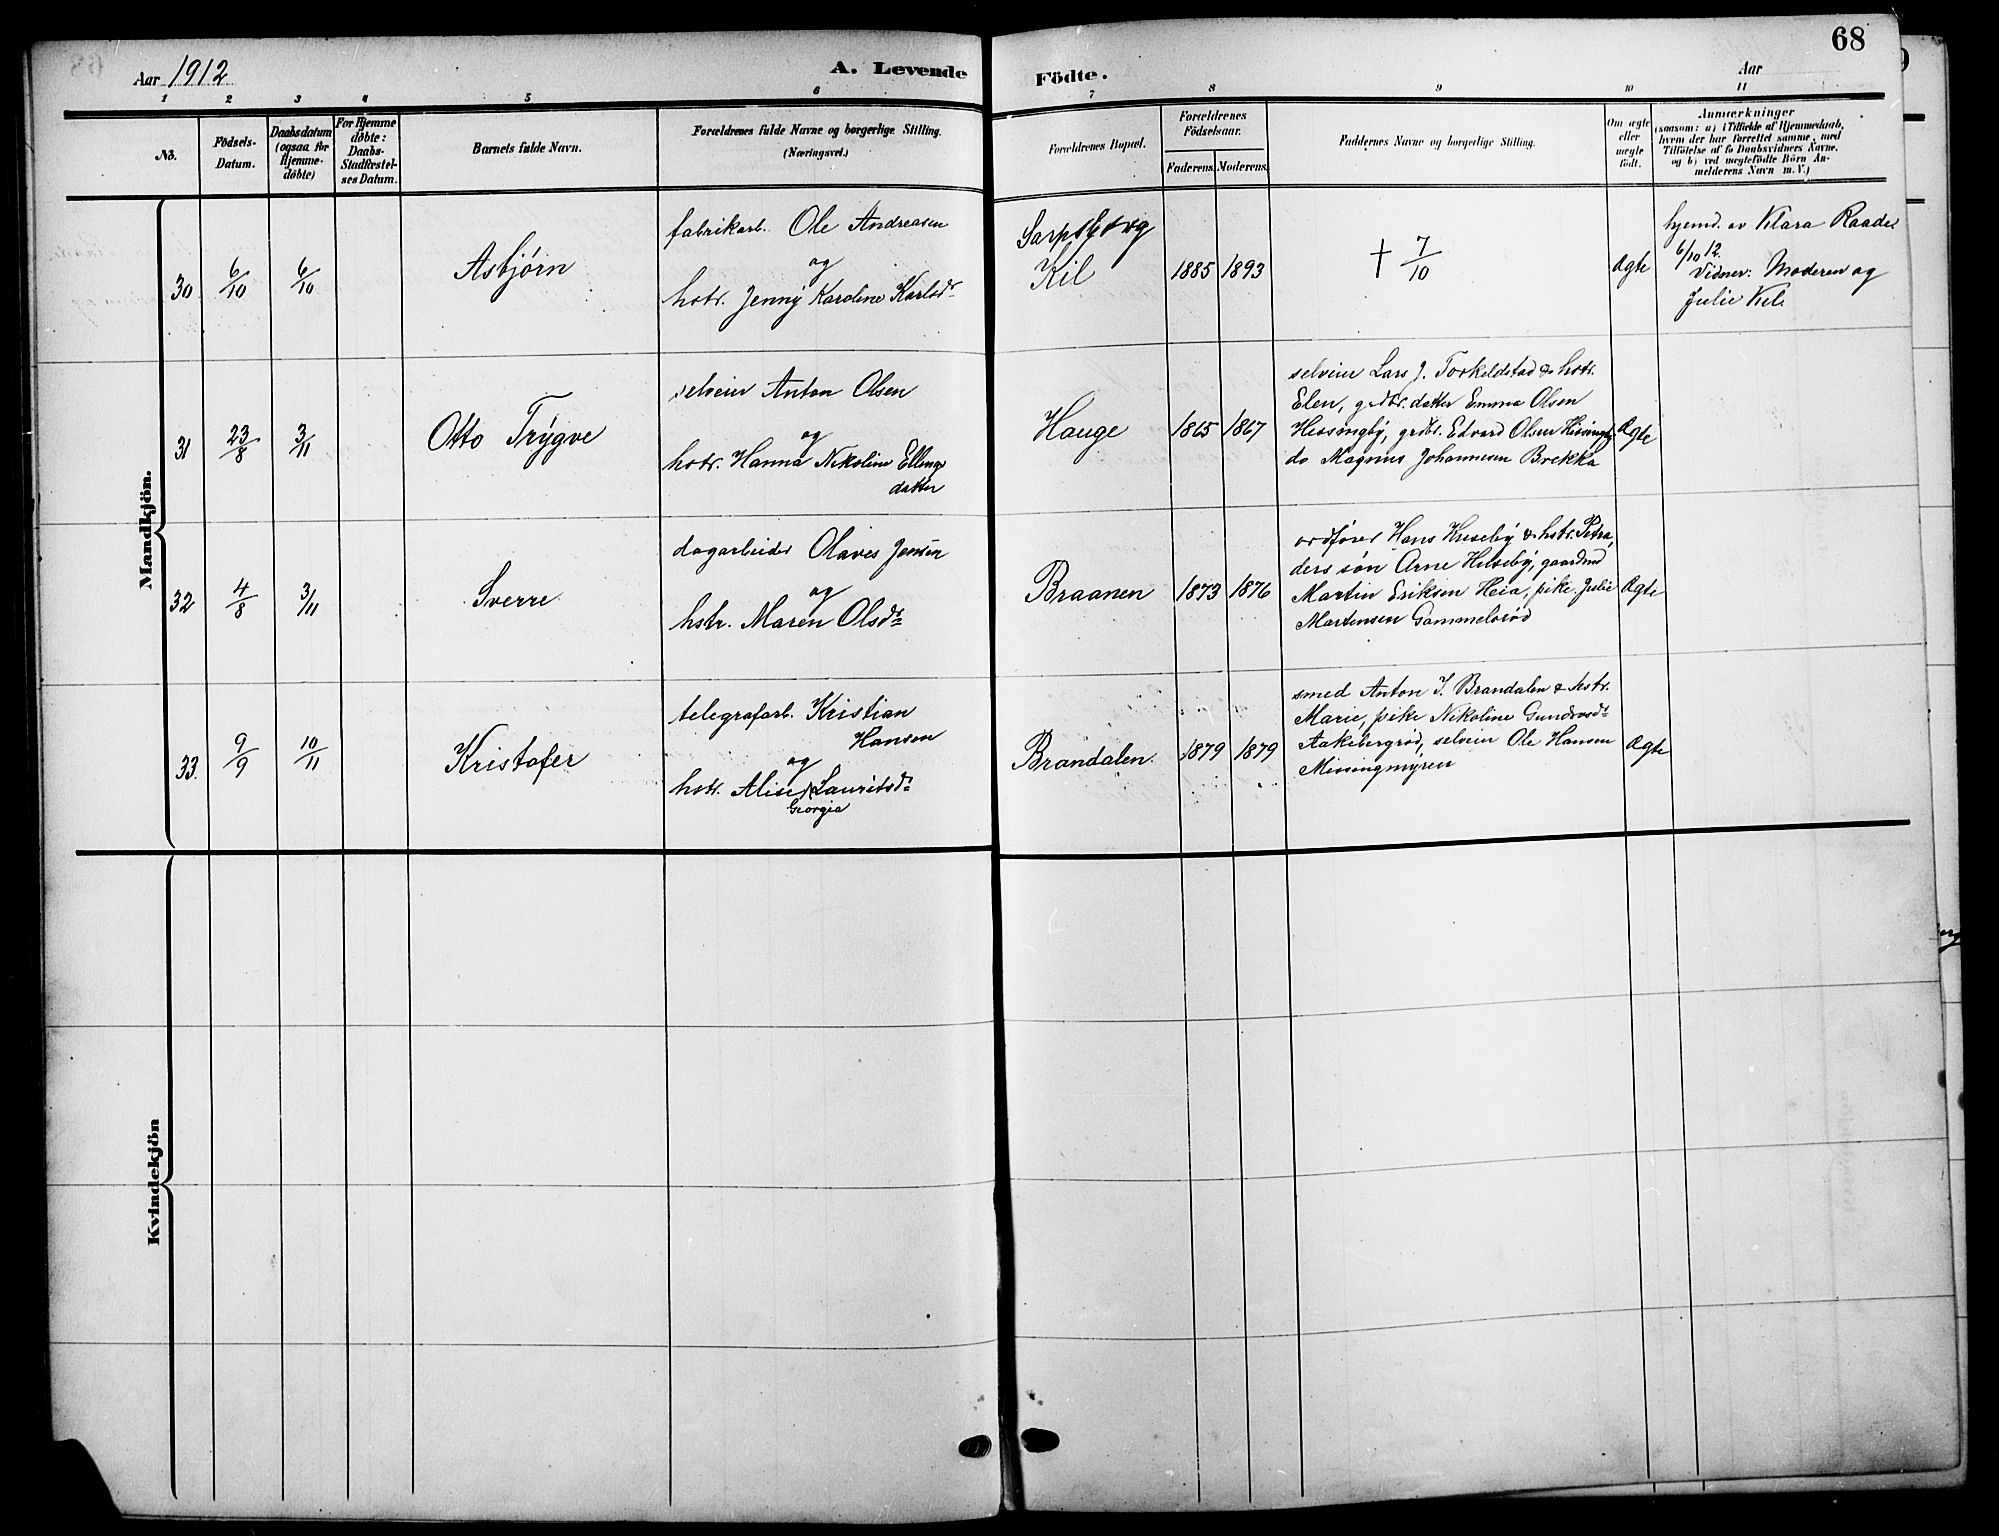 68
Aar 1912
A. Levende Födte.
Aar
1 2 3 4 5 6 7 8 9 10 11
No.
Födsels-
Datum.
Daabsdatum
(ogsaa for
Hjemme-
döbte)
For Hjemme
döbte:
Daabs-
Stadfæstel-
ses Datum.
Barnets fulde Navn.
Forældrenes fulde Navne og borgerlige Stilling.
(Næringsvei.)
Forældrenes Bopæl.
Forældrenes
Födselsaar.
Faderens. Moderens.
Faddernes Navne og borgerlige Stilling.
Om ægte
eller
uægte
födt.
Anmærkninger
(saasom: a) i Tilfælde af Hjemmedaab,
hvem der har forrettet samme, med
Tilföielse af to Daabsvidners Navne,
og b) ved uægtefödte Börn An-
melderens Navn m. V.)
Mandkjön.
30 6/10 6/10 Asbjørn
fabrikarb. Ole Andreasen
og
hstr. Jenny Karoline Karlsdr
Sarpsborg
Kil
1885 1893
† 7/10
Ægte
hjemd. av Klara Raade
6/10 12.
Vidner: Moderen og
Julie Kil.
31 23/8 3/11 Otto Trygve
selveier Anton Olsen
og
hstr. Hanna Nikoline Ellings
datter
Hauge
1865 1867
selveier Lars J. Torkeldstad & hstr.
Elen, grdbr. datter Emma Olsen
Hissingby, grdbr. Edvard Olsen Hissingby
do Magnus Johannesen Brekka
Ægte
32 4/8 3/11 Sverre
dagarbeider Olaves Jensen
og
hstr. Maren Olsdr
Braanen
1873 1876
ordfører Hans Huseby & hstr. Petra,
ders søn Arne Helseby, gaardmd
Martin Eriksen Heia, pike Julie
Martensen Gammelsrød
Ægte
33. 9/9 10/11 Kristofer
telegrafarb. Kristian
Hansen
og
hstr. Alise Lauritsdr
Georgia
Brandalen.
1879 1879
smed Anton I. Brandalen & hstr.
Marie, pike Nikoline Gundrosdr
Aakebergrød, selveier Ole Hansen
Missingmyren
Ægte
Kvindekjön